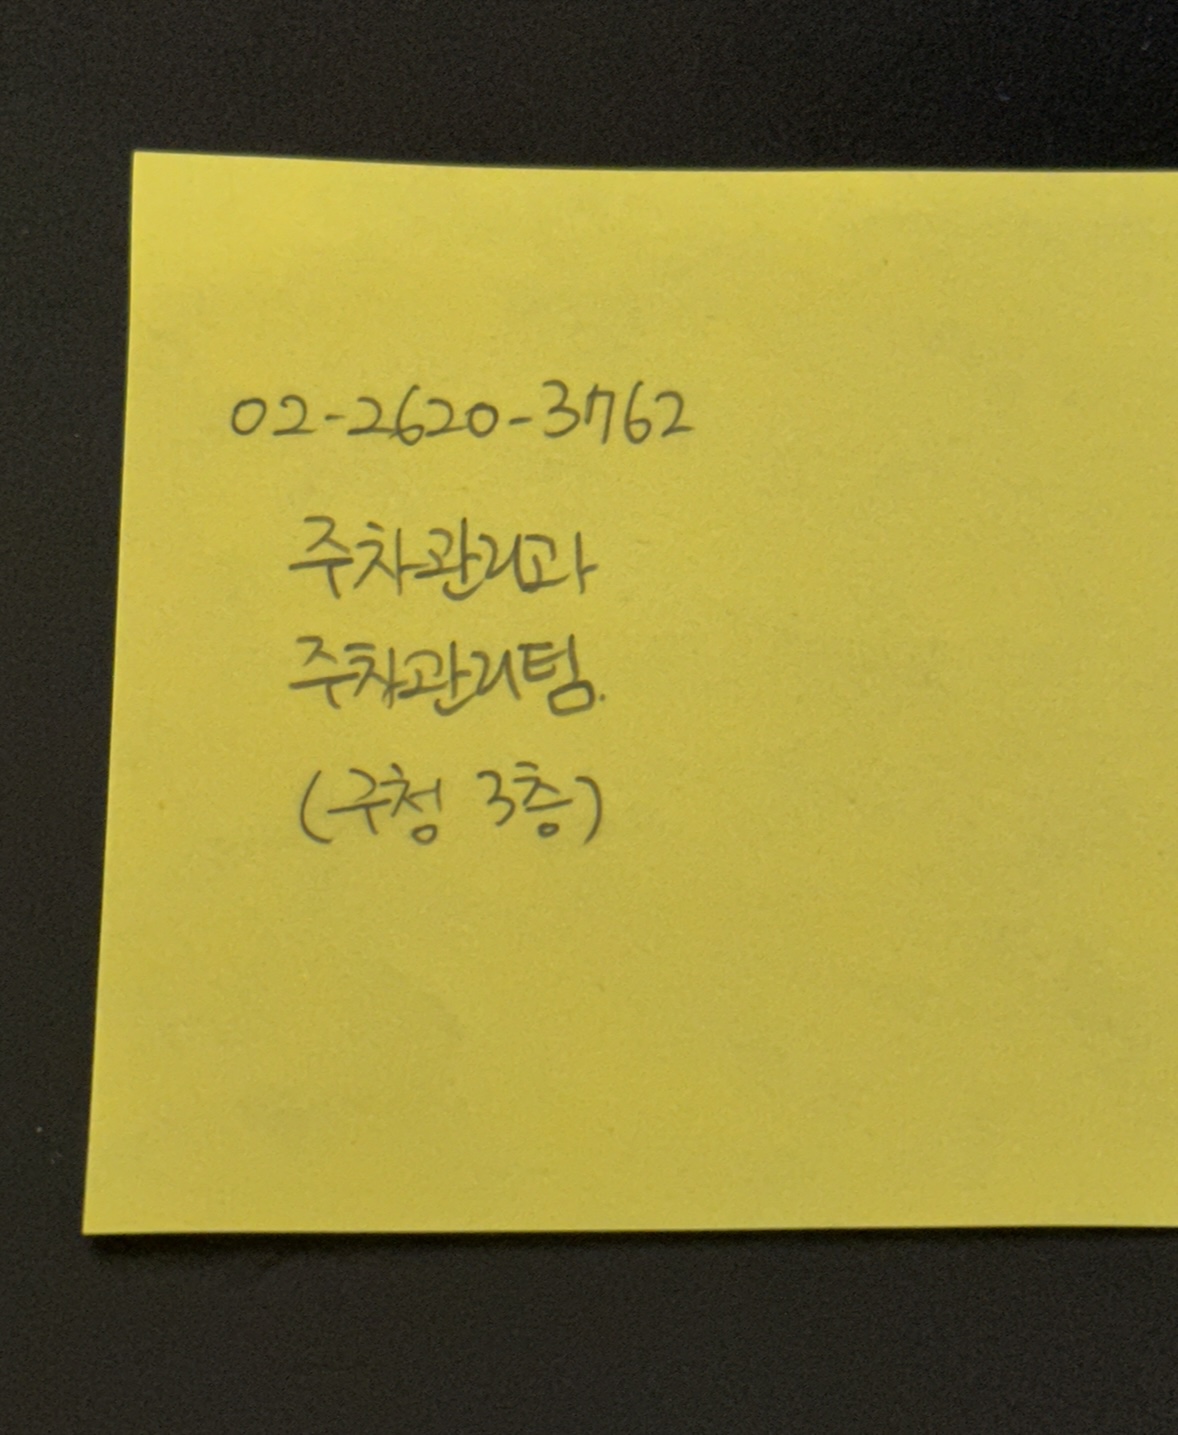 02-2620-3762
주차관리과
주차관리팀.
(구청 3층)